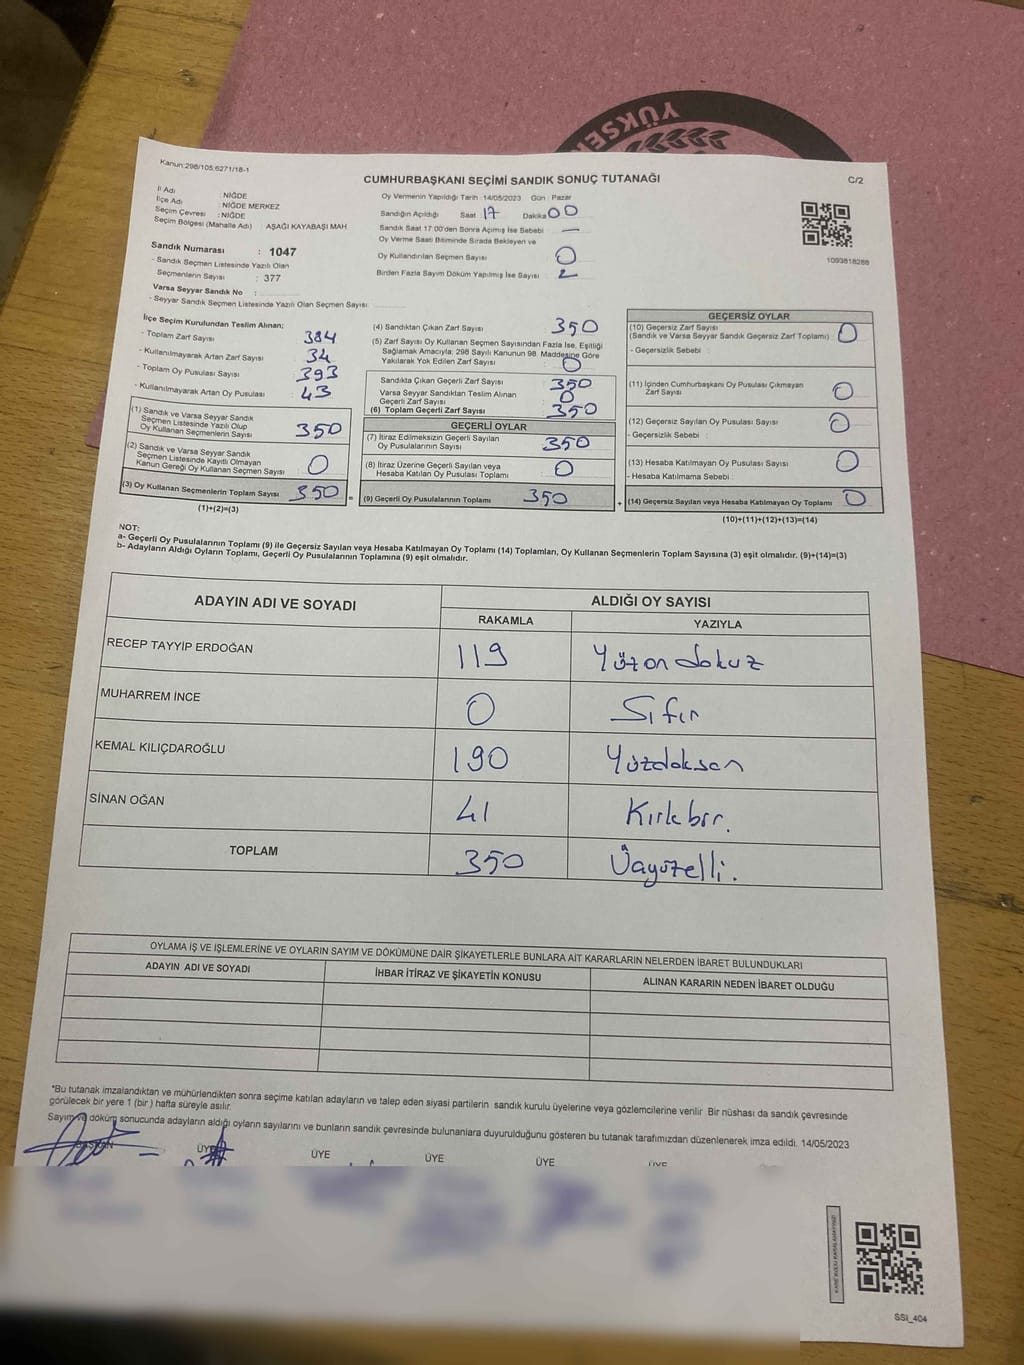 YÜKSE
Kanun:298/105;6271/18-1
CUMHURBAŞKANI SEÇİMİ SANDIK SONUÇ TUTANAĞI
C/2
İl Adı : NİĞDE
İlçe Adı : NİĞDE MERKEZ
Seçim Çevresi : NİĞDE
Seçim Bölgesi (Mahalle Adı) : AŞAĞI KAYABAŞI MAH
Sandık Numarası : 1047
- Sandık Seçmen Listesinde Yazılı Olan
Seçmenlerin Sayısı : 377
Varsa Seyyar Sandık No :
- Seyyar Sandık Seçmen Listesinde Yazılı Olan Seçmen Sayısı:
Oy Vermenin Yapıldığı Tarih :14/05/2023 Gün : Pazar
Sandığın Açıldığı Saat 17 Dakika 00
Sandık Saat 17:00'den Sonra Açımış İse Sebebi : —
Oy Verme Saati Bitiminde Sırada Bekleyen ve
Oy Kullandırılan Seçmen Sayısı : 0
Birden Fazla Sayım Döküm Yapılmış İse Sayısı : 2
1093818288
İlçe Seçim Kurulundan Teslim Alınan;
- Toplam Zarf Sayısı : 384
- Kullanılmayarak Artan Zarf Sayısı : 34
- Toplam Oy Pusulası Sayısı : 393
- Kullanılmayarak Artan Oy Pusulası : 43
(1) Sandık ve Varsa Seyyar Sandık
Seçmen Listesinde Yazılı Olup
Oy Kullanan Seçmenlerin Sayısı 350
(2) Sandık ve Varsa Seyyar Sandık
Seçmen Listesinde Kayıtlı Olmayan
Kanun Gereği Oy Kullanan Seçmen Sayısı 0
(3) Oy Kullanan Seçmenlerin Toplam Sayısı 350
(1)+(2)=(3)
=
(4) Sandıktan Çıkan Zarf Sayısı : 350
(5) Zarf Sayısı Oy Kullanan Seçmen Sayısından Fazla İse, Eşitliği
Sağlamak Amacıyla; 298 Sayılı Kanunun 98. Maddesine Göre
Yakılarak Yok Edilen Zarf Sayısı : 0
Sandıkta Çıkan Geçerli Zarf Sayısı : 350
Varsa Seyyar Sandıktan Teslim Alınan
Geçerli Zarf Sayısı : 0
(6) Toplam Geçerli Zarf Sayısı : 350
GEÇERLİ OYLAR
(7) İtiraz Edilmeksizin Geçerli Sayılan
Oy Pusulalarının Sayısı : 350
(8) İtiraz Üzerine Geçerli Sayılan veya
Hesaba Katılan Oy Pusulası Toplamı : 0
(9) Geçerli Oy Pusulalarının Toplamı 350
+
GEÇERSİZ OYLAR
(10) Geçersiz Zarf Sayısı
(Sandık ve Varsa Seyyar Sandık Geçersiz Zarf Toplamı) : 0
- Geçersizlik Sebebi :
(11) İçinden Cumhurbaşkanı Oy Pusulası Çıkmayan
Zarf Sayısı : 0
(12) Geçersiz Sayılan Oy Pusulası Sayısı : 0
- Geçersizlik Sebebi :
(13) Hesaba Katılmayan Oy Pusulası Sayısı : 0
- Hesaba Katılmama Sebebi :
(14) Geçersiz Sayılan veya Hesaba Katılmayan Oy Toplamı 0
(10)+(11)+(12)+(13)=(14)
NOT:
a- Geçerli Oy Pusulalarının Toplamı (9) ile Geçersiz Sayılan veya Hesaba Katılmayan Oy Toplamı (14) Toplamları, Oy Kullanan Seçmenlerin Toplam Sayısına (3) eşit olmalıdır. (9)+(14)=(3)
b- Adayların Aldığı Oyların Toplamı, Geçerli Oy Pusulalarının Toplamına (9) eşit olmalıdır.
ADAYIN ADI VE SOYADI
ALDIĞI OY SAYISI
RAKAMLA YAZIYLA
RECEP TAYYİP ERDOĞAN 119 Yüzon dokuz
MUHARREM İNCE 0 Sıfır
KEMAL KILIÇDAROĞLU 190 Yüzdoksan
SİNAN OĞAN 41 Kırkbir.
TOPLAM 350 Üçyüzelli.
OYLAMA İŞ VE İŞLEMLERİNE VE OYLARIN SAYIM VE DÖKÜMÜNE DAİR ŞİKAYETLERLE BUNLARA AİT KARARLARIN NELERDEN İBARET BULUNDUKLARI
ADAYIN ADI VE SOYADI
İHBAR İTİRAZ VE ŞİKAYETİN KONUSU
ALINAN KARARIN NEDEN İBARET OLDUĞU
*Bu tutanak imzalandıktan ve mühürlendikten sonra seçime katılan adayların ve talep eden siyasi partilerin sandık kurulu üyelerine veya gözlemcilerine verilir. Bir nüshası da sandık çevresinde
görülecek bir yere 1 (bir ) hafta süreyle asılır.
Sayım ve döküm sonucunda adayların aldığı oyların sayılarını ve bunların sandık çevresinde bulunanlara duyurulduğunu gösteren bu tutanak tarafımızdan düzenlenerek imza edildi. 14/05/2023
BAŞKAN ÜYE ÜYE ÜYE ÜYE ÜYE
SSI_404